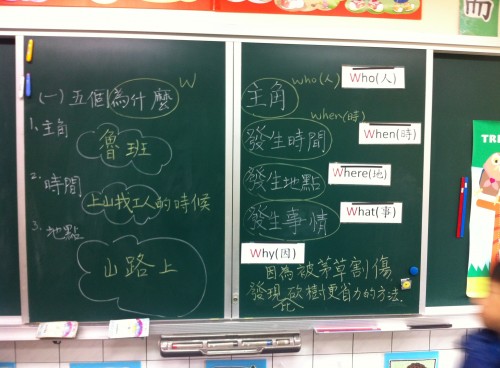 (一)五個為什麼
W
1. 主角
魯班
2. 時間
上山找工人的時候
3. 地點
山路上
主角
who(人)
Who(人)
when(時)
發生時間
When(時)
發生地點
Where(地)
發生事情
What(事)
Why(因)
因為被茅草割傷
發現砍樹更省力的方法.
TRE